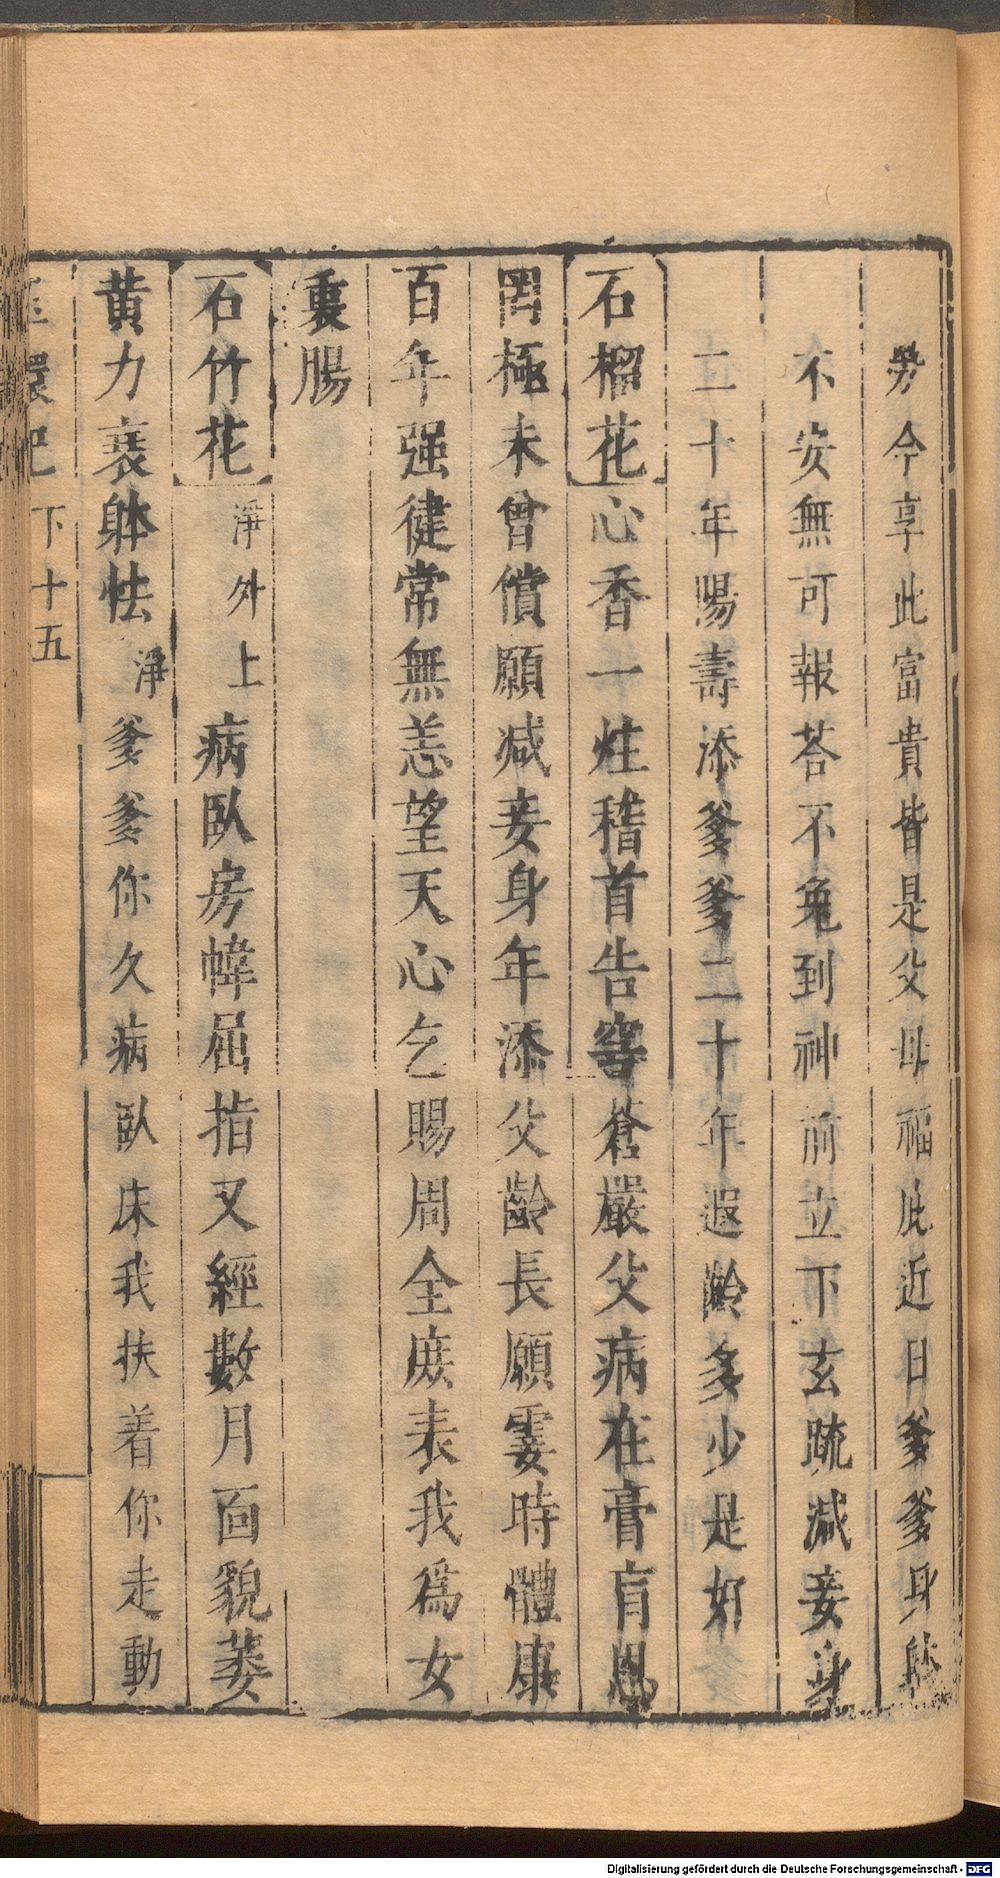 勞今享此富貴皆是父母福庇近日爹爹身躰
不安無可報荅不免到神前立下玄䟽減妾身
二十年陽壽添爹爹二十年遐齡多少是好
石榴花心香一炷稽首告窨蒼嚴父病在膏肓恩
罔極未曾償願减妾身年添父齡長願霎時體康
百年强健常無恙望天心乞賜周全庻表我爲女
裏腸
石竹花 淨外上 病臥房幃屈指又經數月面貌萎
黄力衰躰怯 淨 爹爹你久病臥床我扶着你走動
玉環記 下十五
Digitalisierung gefördert durch die Deutsche Forschungsgemeinschaft - DFG